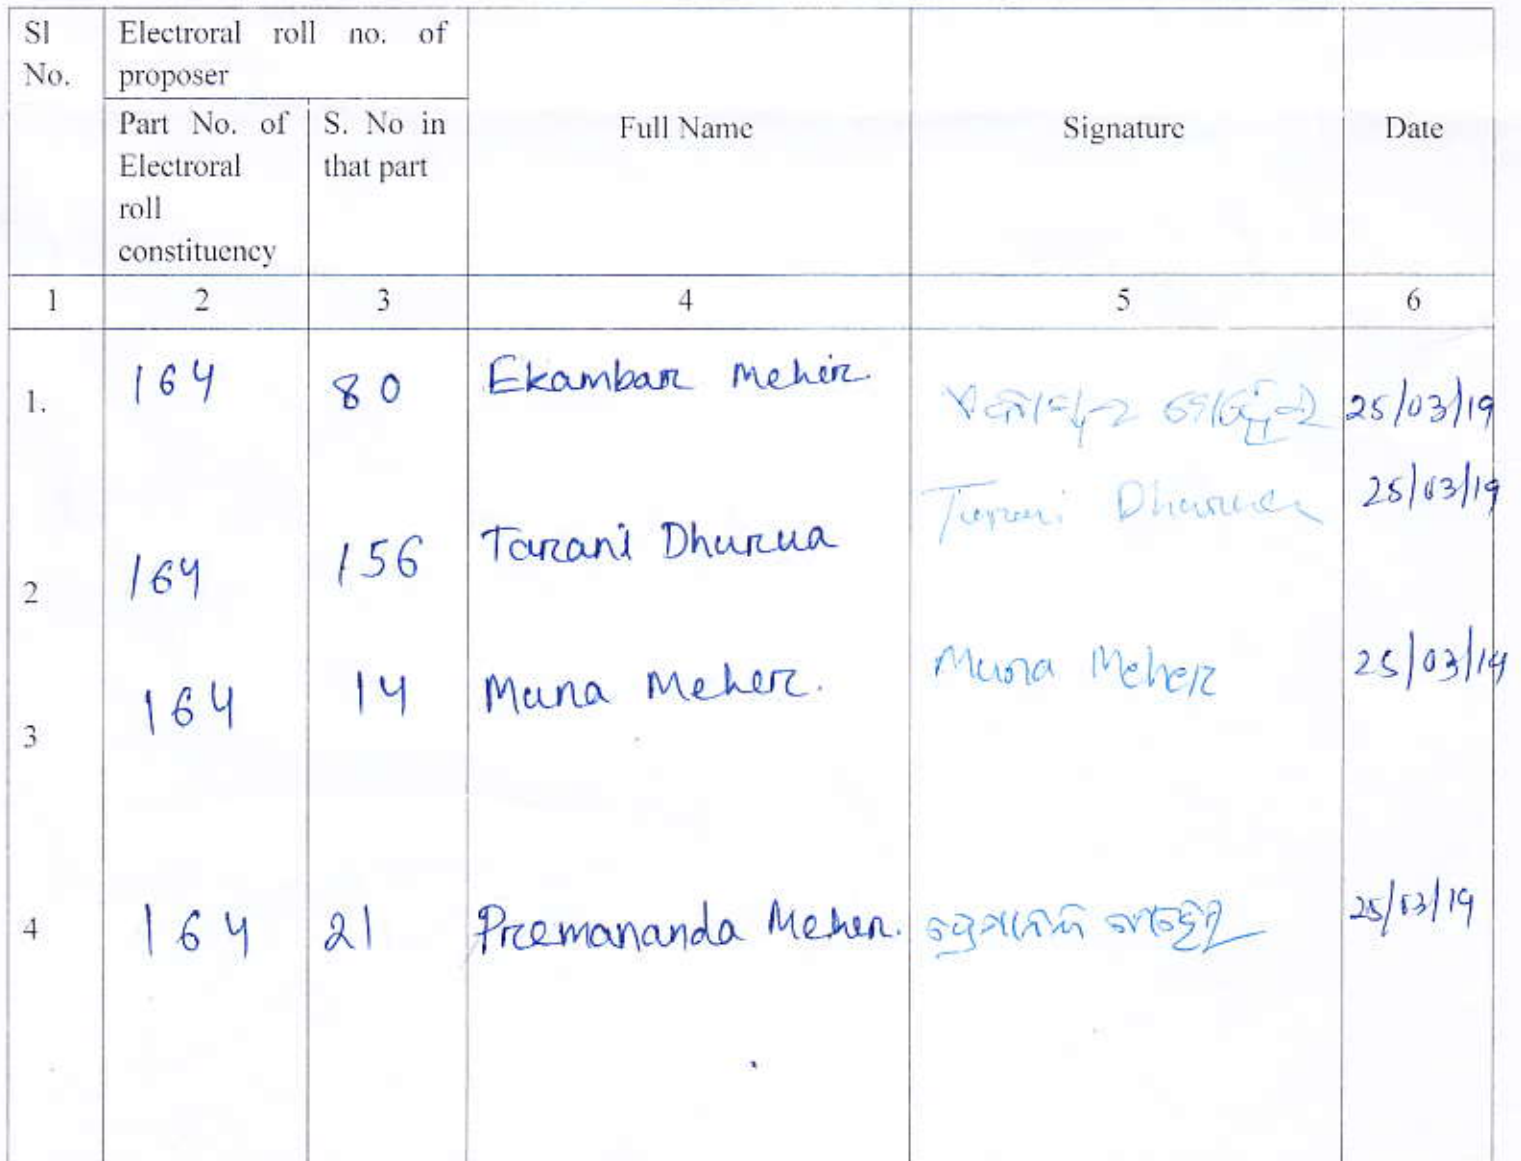 Sl No. Electroral roll no. of proposer
Part No. of Electroral roll constituency S. No in that part Full Name Signature Date
1 2 3 4 5 6
1. 164 80 Ekambar Meher. 25/03/19
2 164 156 Tarani Dhurua Tarani Dhurua 25/03/19
3 164 14 Muna Meher. Muna Meher 25/03/19
4 164 21 Premananda Meher. 25/03/19